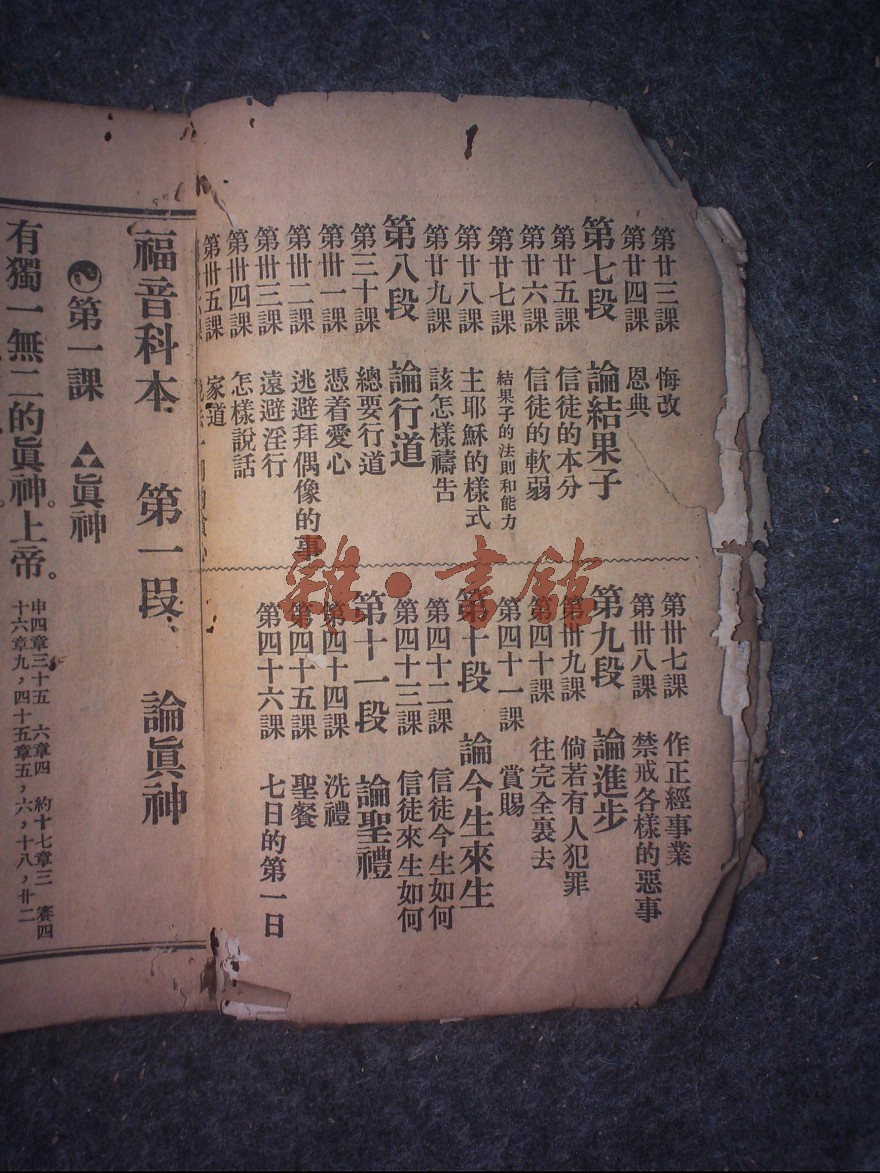 第廿三課 悔改
第廿四課 恩典
第七段 論結果子
第廿五課 信徒的本分
第廿六課 信徒的軟弱
第廿七課 結果子的法則和能力
第廿八課 主耶穌的樣式
第廿九課 該怎樣禱告
第八段 論行道
第三十課 總要行道
第卅一課 憑着愛心
第卅二課 逃避拜偶像的事
第卅三課 遠避淫行
第卅四課 怎樣說話
第卅五課 家道
第卅七課 作正經事業
第卅八課 禁戒各樣的惡事
第九段 論進步
第卅九課 倘若有人犯罪
第四十課 往完全裏去
第四十一課 賞賜
第十段 論今生來生
第四十二課 信徒今生如何
第四十三課 信徒來生如何
第十一段 論聖禮
第四十四課 洗禮
第四十五課 聖餐
第四十六課 七日的第一日
雜·書館
福音科本 第一段 論眞神
第一課 眞神
有獨一無二的眞神。上帝。
申四章三十五 六章四 約十七章三 賽四
十六章九，四十五章五，六，十八，廿二